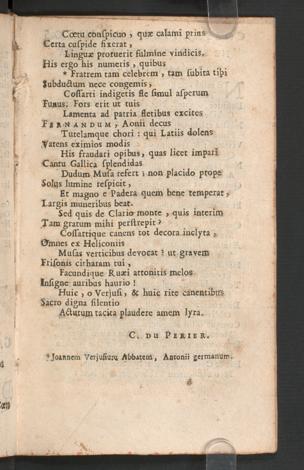 Cœtu conspicuo, quæ calami prius
Certa cuspide fixerat,
Linguæ protuerit fulmine vindicis.
His ergo his numeris, quibus
* Fratrem tam celebrem, tam subita tibi
Subductum nece congemis,
Cossarti indigetis fle simul asperum
Funus. Fors erit ut tuis
Lamenta ad patria flectibus excites
FERNANDUM, Aonii decus
Tutelamque chori: qui Latiis dolens
Vatens eximios modis
His fraudari opibus, quas licet impari
Cantu Gallica splendidas
Dudum Musa refert: non placido prope
Solus lumine respicit,
Et magno e Padera quem bene temperat,
Largis muneribus beat.
Sed quis de Clario monte, quis interim
Tam gratum mihi perstrepit?
Cossartique canens tot decora inclyta,
Omnes ex Heliconiis
Musas verticibus devocat? ut gravem
Frisonis citharam tui,
Facundique Ruæi attonitis melos
Insigne auribus haurio!
Huic, o Verjusi, & huic rite canentibus
Sacro digna silentio
Actutum tacita plaudere amem lyra.
C. DU PERIER.
* Joannem Verjusium Abbatem, Antonii germanum.